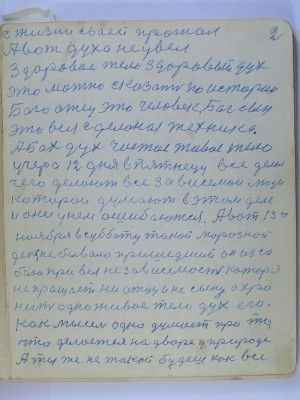 2
с жизни своей прогнал
А вот духа не увел
Здоровое тело здоровый дух
это можно сказать по истории
Бог отец это человек, Бог сын
это вся сделоная техника.
А Бог дух чистае живае тело
учора 12 дня в пятнецу все делал
чего делают все зависемаи люди
котораи думают в этом деле
и они у нем ошибаются. А вот 13
ноября в субботу такой морозной
день не бовано пришедший он из со
бою привел независемость которая
не прощает ни отцу и не сыну а хро
нить одно живое тело дух его.
Как мысел одно думает про то,
что делается на дворе у природе
А ты же не такой будеш как все